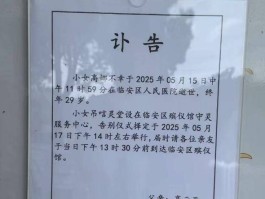 讣告
小女高娜不幸于 2025 年 05 月 15 日中
午 11 时 59 分在临安区人民医院逝世，终
年 29 岁。
小女吊唁灵堂设在临安区殡仪馆守灵
服务中心，告别仪式择定于 2025 年 05 月
17 日下午 14 时左右举行，届时请各位亲
友于当日下午 13 时 30 分前到达临安区殡仪
馆。